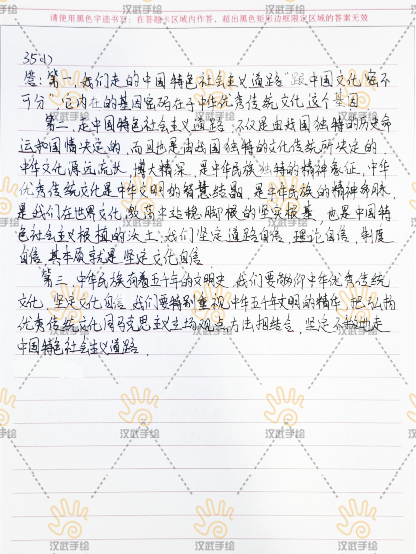 请使用黑色字迹书写,在答题卡区域内作答,超出黑色矩形边框限定区域的答案无效
35(1)
答:第一,我们走的中国特色社会主义道路"跟中国文化密不
可分,它内在的基因密码在于中华优秀传统文化这个基因
第二,走中国特色社会主义道路,不仅是由我国独特的历史命
运和国情决定的,而且也是由我国独特的文化传统所决定的
中华文化源远流长,博大精深,是中华民族独特的精神表征,中华
优秀传统文化是中华文明的智慧结晶,是中华民族的精神命脉,
是我们在世界文化激荡中站稳脚根的坚实根基,也是中国特
色社会主义根植的沃土;我们坚定道路自信,理论自信,制度
自信,其本质就是坚定文化自信
第三,中华民族有着五千年的文明史,我们要敬仰中华优秀传统
文化,坚定文化自信,我们要特别重视中华五千年文明的精华,把弘扬
优秀传统文化同马克思主义立场观点方法相结合,坚定不移地走
中国特色社会主义道路.
汉武手绘
汉武手绘
汉武手绘
汉武手绘
汉武手绘
汉武手绘
汉武手绘
汉武手绘
汉武手绘
汉武手绘
汉武手绘
汉武手绘